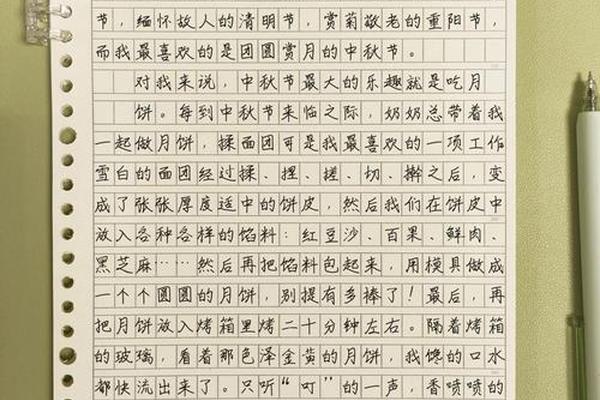 节，缅怀故人的清明节，赏菊敬老的重阳节，
而我最喜欢的是团圆赏月的中秋节。
对我来说，中秋节最大的乐趣就是吃月
饼。每到中秋节来临之际，奶奶总带着我
一起做月饼，揉面团可是我最喜欢的一项工作
雪白的面团经过揉、捏、搓、切、擀之后，变
成了张张厚度适中的饼皮，然后我们在饼皮中
放入各种各样的馅料：红豆沙、百果、鲜肉、
黑芝麻……然后再把馅料包起来，用模具做成
一个个圆圆的月饼，别提有多棒了！最后，再
把月饼放入烤箱里烤二十分钟左右。隔着烤箱
的玻璃，看着那色泽金黄的月饼，我馋的口水
都快流出来了。只听“叮”的一声，香喷喷的